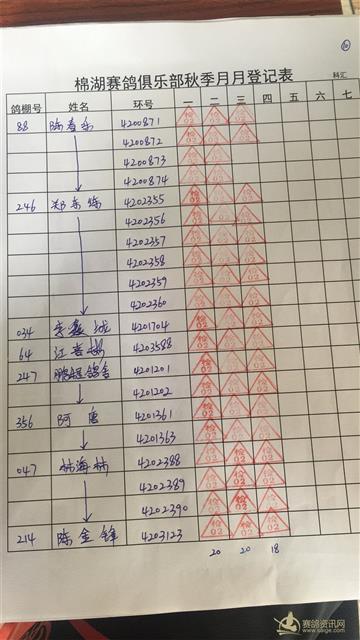 10
棉湖赛鸽俱乐部秋季月月登记表
科汇
鸽棚号 姓名 环号 一 二 三 四 五 六 七
88 陈春乐 4200871
4200872
4200873
4200874
246 郑东练 4202355
4202356
4202357
4202358
4202359
4202360
034 李 4201704
64 江喜 4203588
247 鹏程鸽舍 4201201
4201202
356 阿 4201361
4201363
047 林海林 4202388
4202389
4202390
214 陈金锋 4203123
20 20 18
赛鸽资讯网
www.saige.com